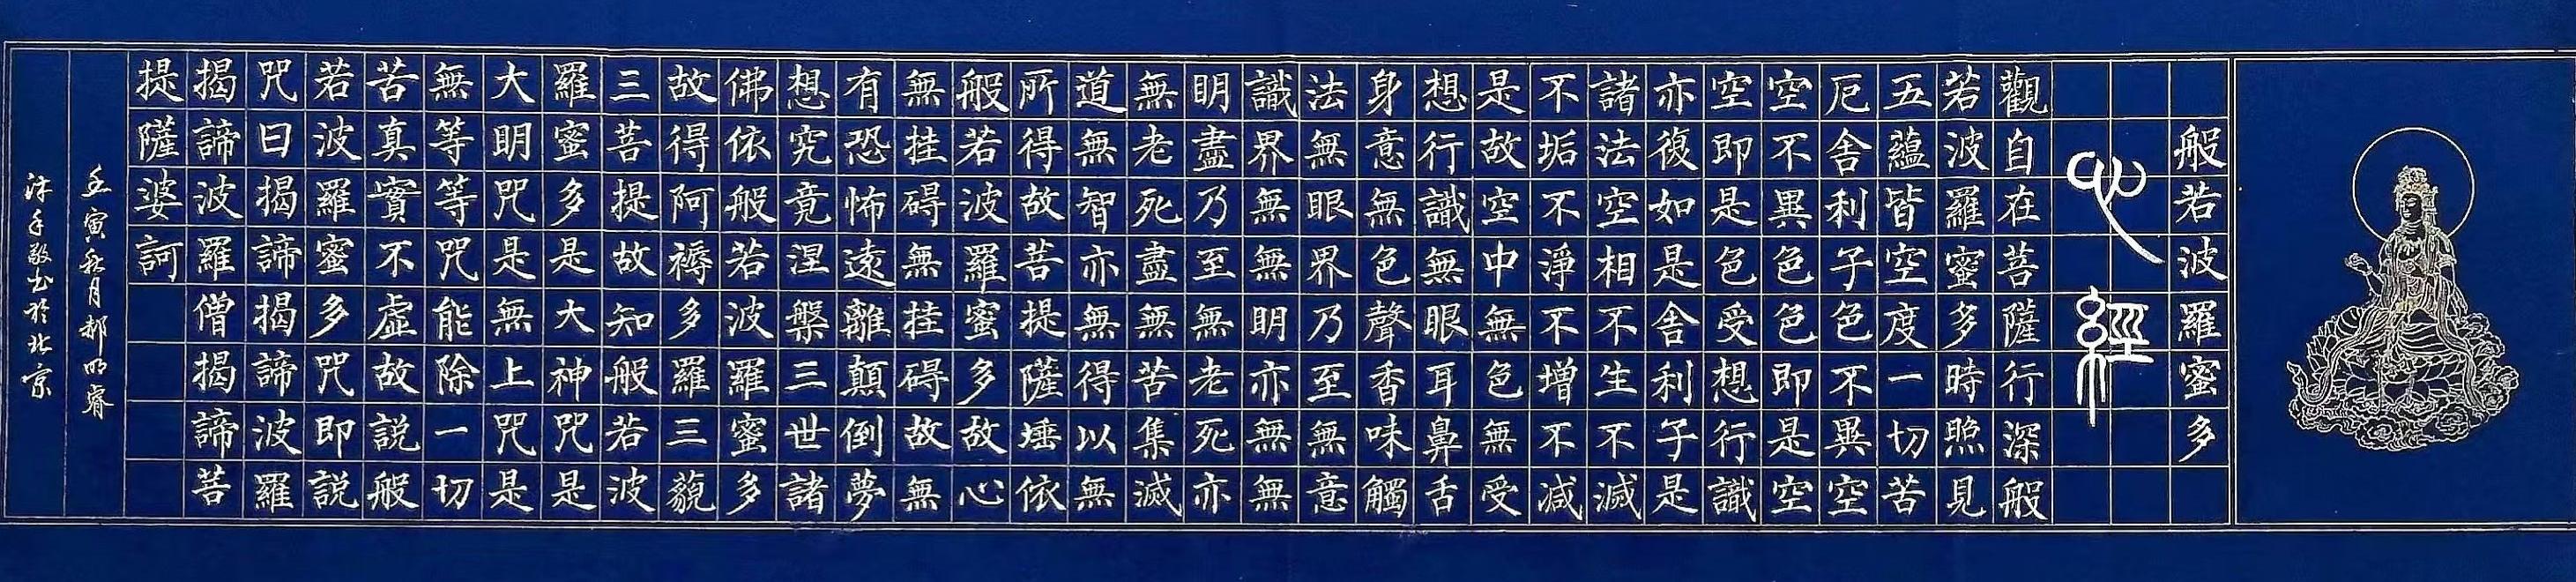 般若波羅蜜多
心經
觀自在菩薩行深般
若波羅蜜多時照見
五蘊皆空度一切苦
厄舍利子色不異空
空不異色色即是空
空即是色受想行識
亦復如是舍利子是
諸法空相不生不滅
不垢不淨不增不減
是故空中無色無受
想行識無眼耳鼻舌
身意無色聲香味觸
法無眼界乃至無意
識界無無明亦無無
明盡乃至無老死亦
無老死盡無苦集滅
道無智亦無得以無
所得故菩提薩埵依
般若波羅蜜多故心
無挂碍無挂碍故無
有恐怖遠離顛倒夢
想究竟涅槃三世諸
佛依般若波羅蜜多
故得阿褥多羅三藐
三菩提故知般若波
羅蜜多是大神咒是
大明咒是無上咒是
無等等咒能除一切
苦真實不虛故說般
若波羅蜜多咒即說
咒曰揭諦揭諦波羅
揭諦波羅僧揭諦菩
提薩婆訶
壬寅秋月郝明睿
沐手敬书於北京